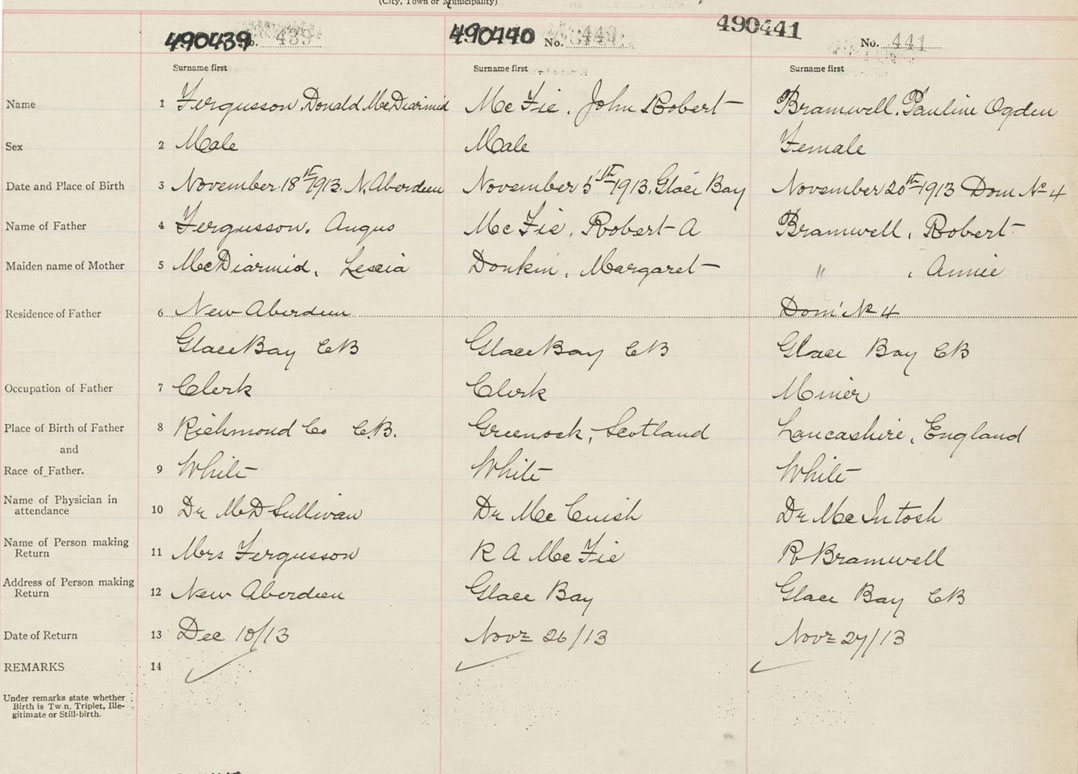 (City, Town or Municipality)
490439 No. 439 490440 No. 440 490441 No. 441
Surname first Surname first Surname first
Name 1 Fergusson, Donald McDiarmid McFie, John Robert Bramwell, Pauline Ogden
Sex 2 Male Male Female
Date and Place of Birth 3 November 18th 1913. N. Aberdeen November 5th 1913. Glace Bay November 20th 1913 Dom No 4
Name of Father 4 Fergusson, Angus McFie, Robert A Bramwell, Robert
Maiden name of Mother 5 McDiarmid, Donkin, Margaret " , Annie
Residence of Father 6 New Aberdeen Dom' No 4
Glace Bay CB Glace Bay CB Glace Bay CB
Occupation of Father 7 Clerk Clerk Miner
Place of Birth of Father 8 Richmond Co C.B. Greenock, Scotland Lancashire, England
and
Race of Father. 9 White White White
Name of Physician in
attendance 10 Dr M D Sullivan Dr McCuish Dr McIntosh
Name of Person making
Return 11 Mrs Fergusson R A McFie R Bramwell
Address of Person making
Return 12 New Aberdeen Glace Bay Glace Bay CB
Date of Return 13 Dec 10/13 Novr 26/13 Novr 27/13
REMARKS 14
Under remarks state whether
Birth is Twin, Triplet, Ille-
gitimate or Still-birth.